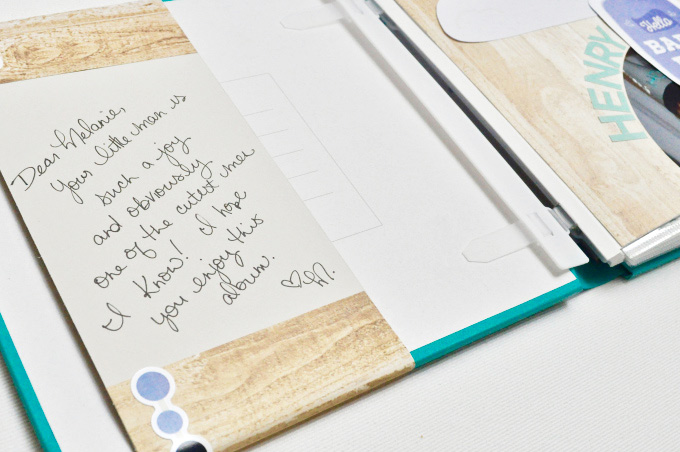 Dear Melanie,
Your little man is
such a joy
and obviously
one of the cutest ones
I know! I hope
you enjoy this
album.
♡ M.
hello
BA
HENRY